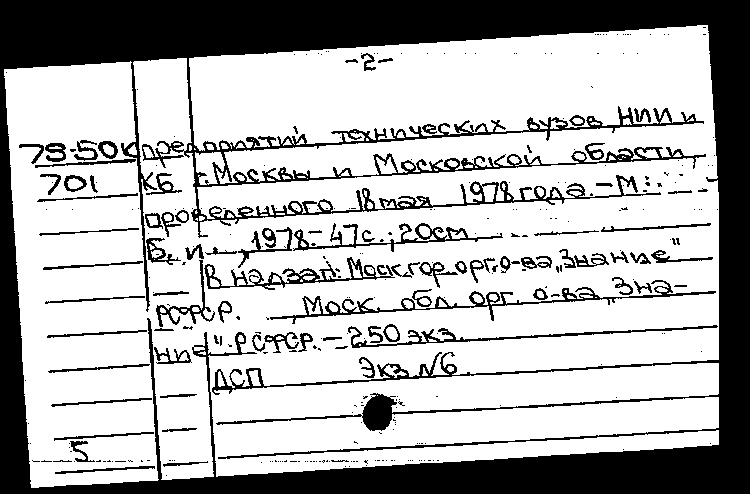 -2-
79-50к предприятий, технических вузов, НИИ и
701 КБ г.Москвы и Московской области,
проведенного 18 мая 1978 года. - М.:
Б. и., 1978.- 47с.; 20см.
В надзаг: Моск.гор.орг.о-ва „Знание"
РСФСР. , Моск. обл. орг. о-ва „Зна-
ние" РСФСР. - 250 экз.
ДСП Экз. №6
5